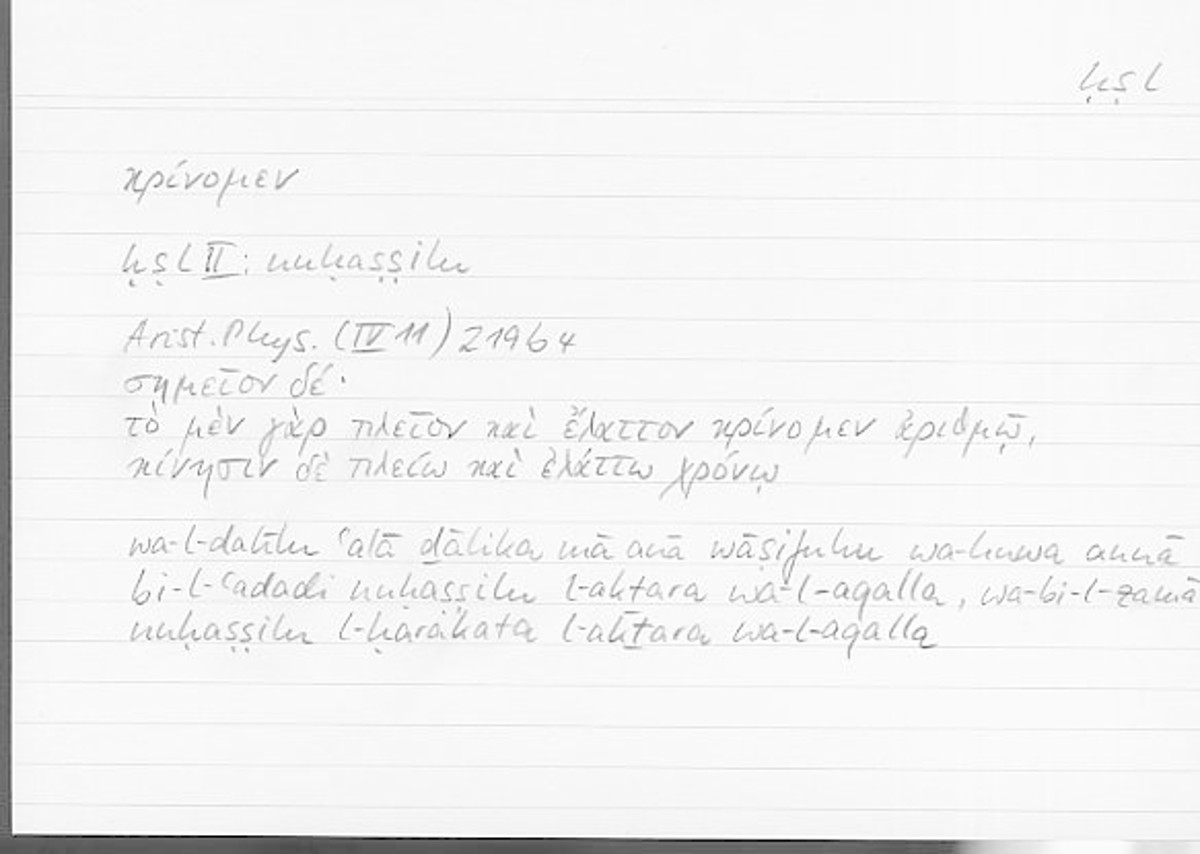 ḥṣl
κρίνομεν
ḥṣl II: nuḥaṣṣilu
Arist. Phys. (IV 11) 219b4
σημεῖον δέ·
τὸ μὲν γὰρ πλεῖον καὶ ἔλαττον κρίνομεν ἀριθμῷ,
κίνησιν δὲ πλείω καὶ ἐλάττω χρόνῳ
wa-l-dalīlu ʿalā ḏālika mā anā wāṣifuhu wa-huwa annā
bi-l-ʿadadi nuḥaṣṣilu l-aktara wa-l-aqalla, wa-bi-l-zamā
nuḥaṣṣilu l-ḥarakata l-akṯara wa-l-aqalla